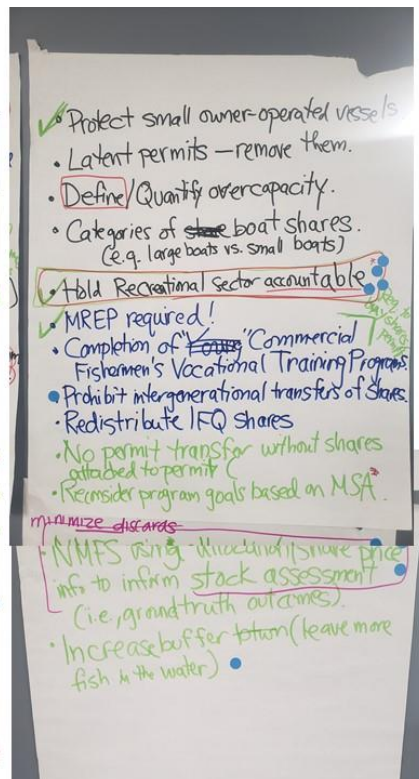 • Protect small owner-operated vessels
• Latent permits – remove them.
• Define/Quantify overcapacity.
• Categories of boat shares.
(e.g. large boats vs. small boats)
• Hold Recreational Sector accountable
• MREP required!
• Completion of " " Commercial
Fishermen's Vocational Training Program.
• Prohibit intergenerational transfers of shares.
• Redistribute IFQ shares
• No permit transfer without shares
attached to permit
• Reconsider program goals based on MSA
minimize discards
• NMFS using allocation/share price
info to inform stock assessment
(i.e., ground truth outcomes).
• Increase buffer (leave more
fish in the water)